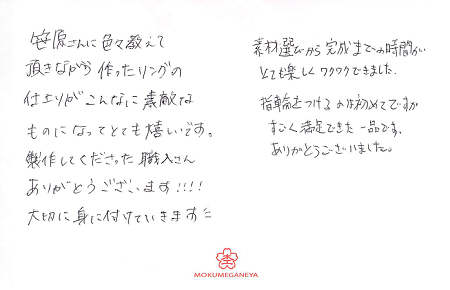 笹原さんに色々教えて
頂きながら作ったリングの
仕上りがこんなに素敵な
ものになってとても嬉しいです。
製作してくださった職人さん
ありがとうございます!!!!
大切に身に付けていきます
素材選びから完成までの時間が
とても楽しくワクワクできました。
指輪をつけるのは初めてですが
すごく満足できた一品です。
ありがとうございました。
MOKUMEGANEYA